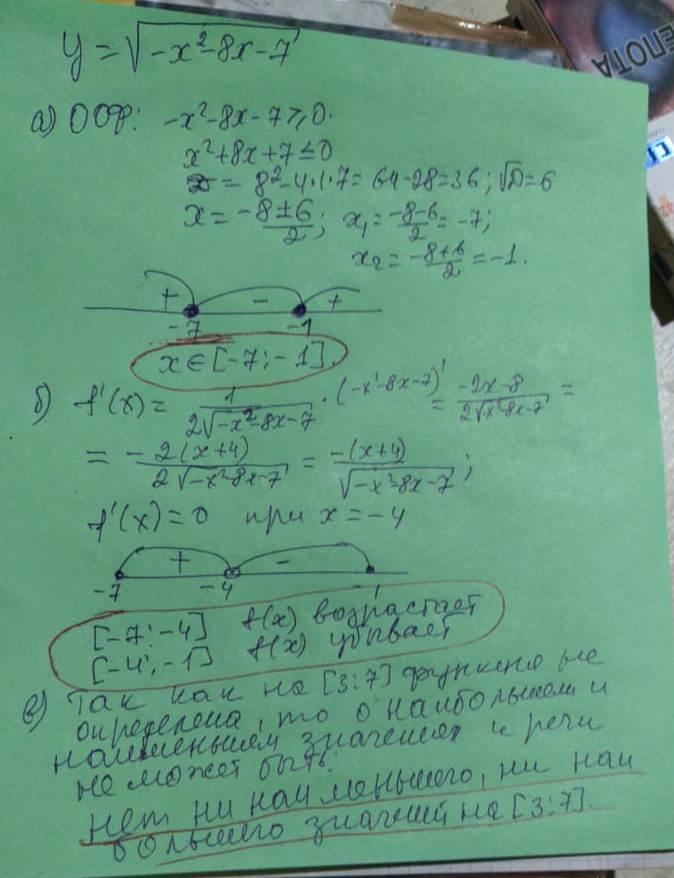 y = √(-x²-8x-7)
ЕПОТА
а) ООФ: -x²-8x-7 ≥ 0.
x²+8x+7 ≤ 0
D = 8²-4·1·7 = 64-28 = 36; √D = 6
x = (-8±6)/2; x₁ = (-8-6)/2 = -7;
x₂ = (-8+6)/2 = -1.
+ - +
-7 -1
x ∈ [-7; -1].
б) f'(x) = 1/(2√(-x²-8x-7)) · (-x²-8x-7)' = (-2x-8)/(2√(-x²-8x-7)) =
= -2(x+4)/(2√(-x²-8x-7)) = -(x+4)/√(-x²-8x-7);
f'(x) = 0 при x = -4
+ -
-7 -4 -1
[-7; -4] f(x) возрастает
[-4; -1] f(x) убывает
в) Так как на [3:7] функция не
определена, то о наибольшем и
наименьшем значениях и речи
не может быть.
нет ни наименьшего, ни наи
большего значений на [3:7].